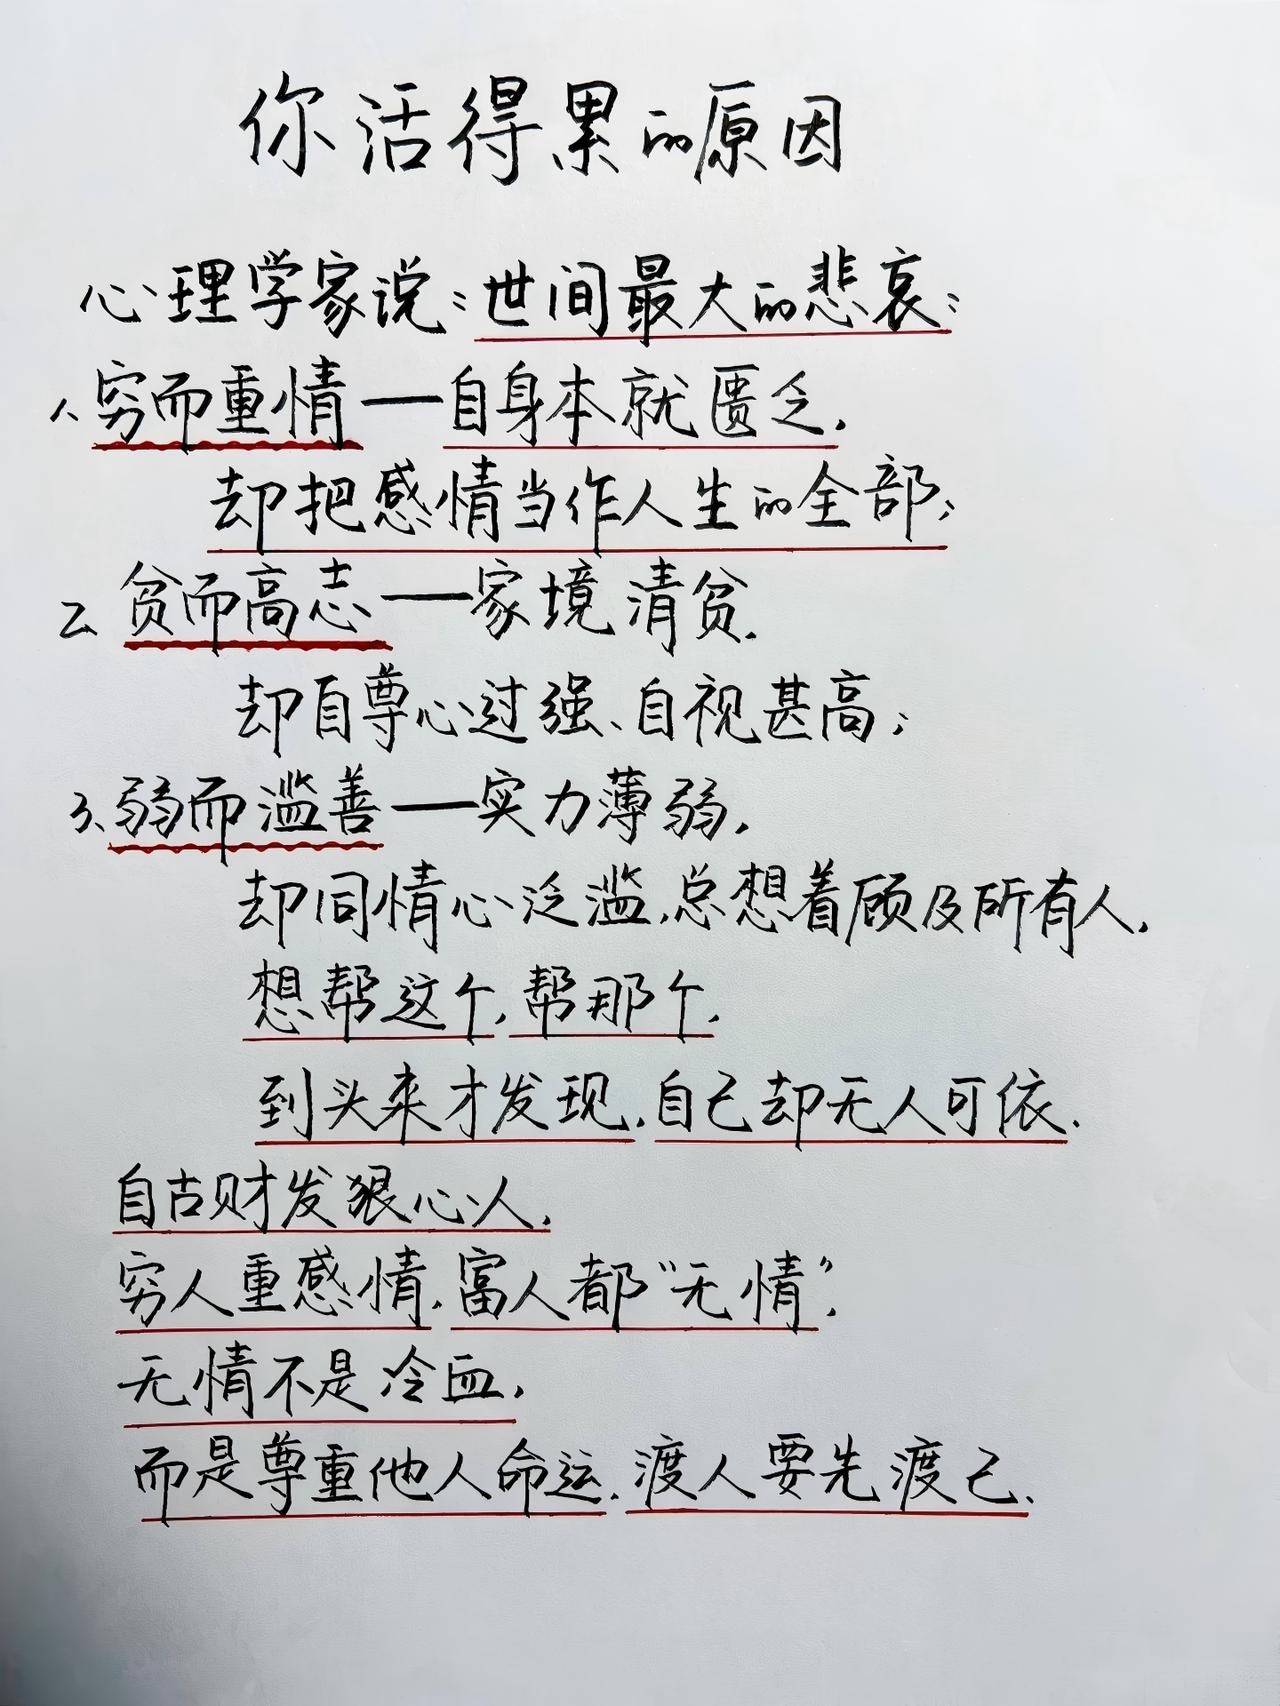 你活得累的原因
心理学家说:世间最大的悲哀:
1、穷而重情——自身本就匮乏,
却把感情当作人生的全部;
2、贫而高志——家境清贫,
却自尊心过强、自视甚高;
3、弱而滥善——实力薄弱,
却同情心泛滥,总想着顾及所有人,
想帮这个,帮那个,
到头来才发现,自己却无人可依.
自古财发狠心人,
穷人重感情,富人都"无情",
无情不是冷血,
而是尊重他人命运,渡人要先渡己.